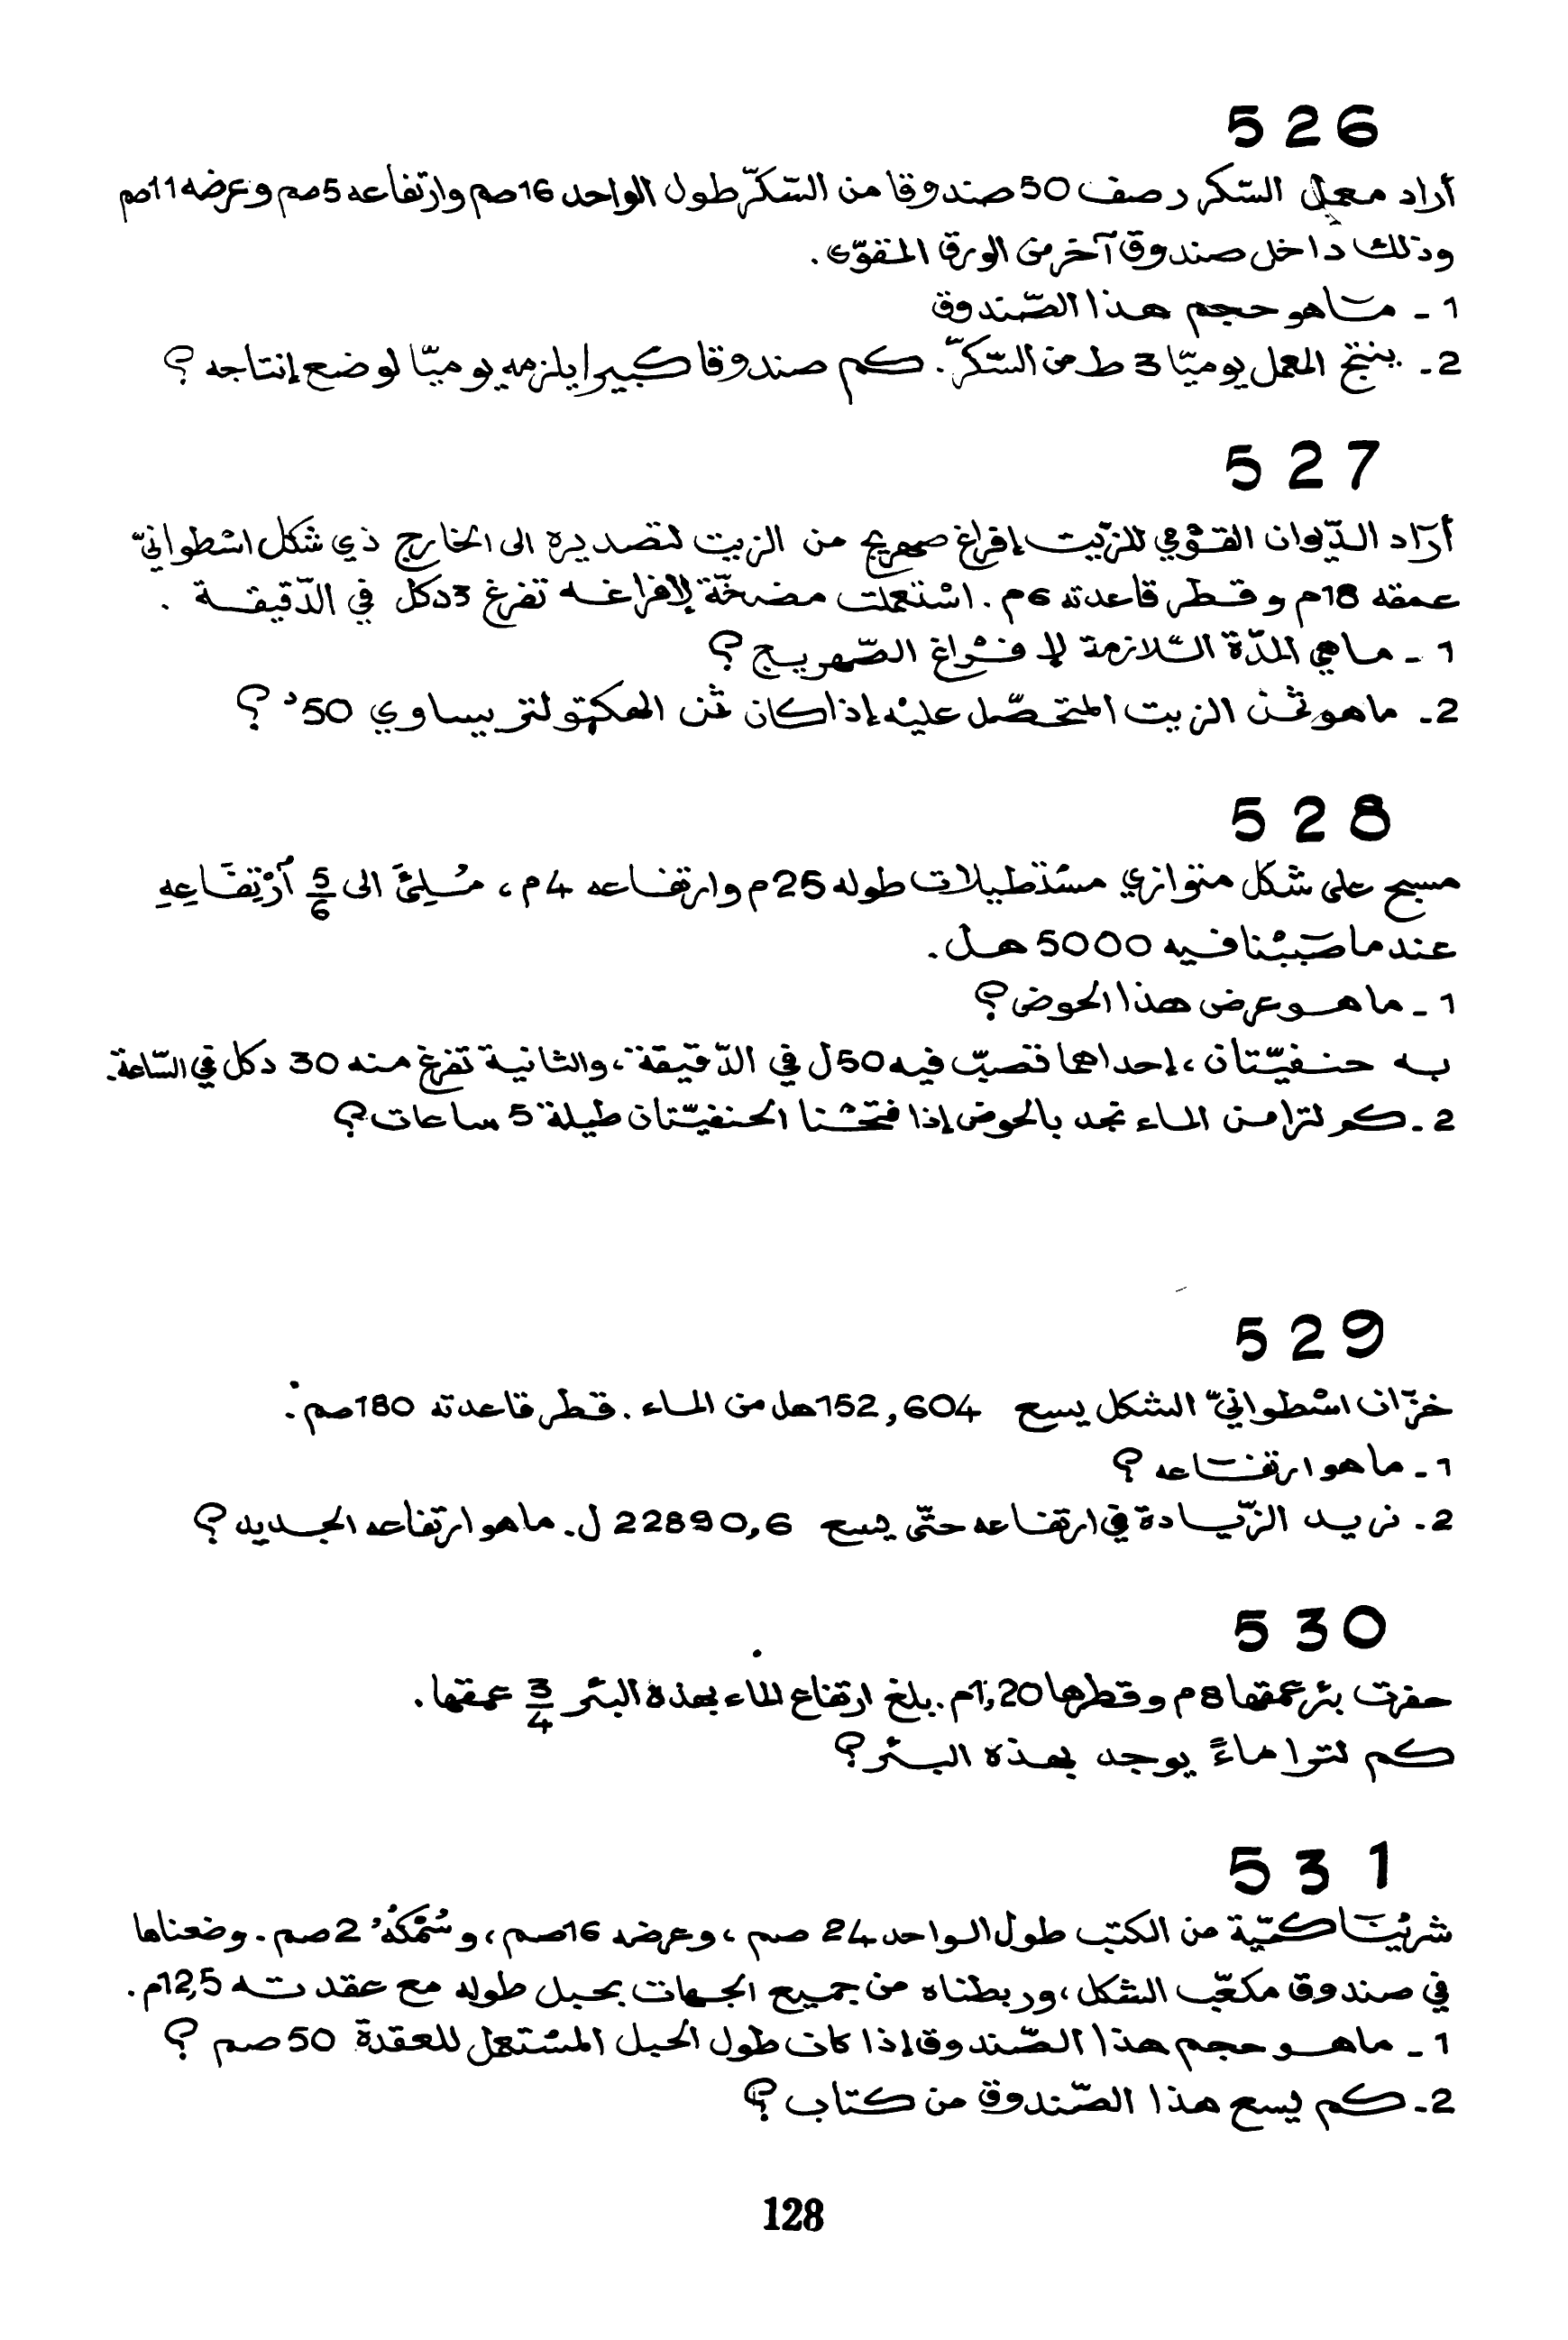 526
أراد معمل السّكر رصف 50 صندوقا من السّكّر طول الواحد 16صم وارتفاعه 5صم وعرضه 11صم
وذلك داخل صندوق آخر من الورق المقوّى.
1 - مَا هو حجم هذا الصّندوق
2 - ينتج المعمل يوميّا 3 ط من السّكّر. كم صندوقا كبيرا يلزمه يوميّا لوضع إنتاجه ؟
527
أرَاد الدّيوان القوْمي للزّيت إفراغ صهريج من الزيت لتصديره الى الخارج ذي شكل اسْطوانيّ
عمقه 18م وقطر قاعدته 6م. اسْتعملت مضخّة لإفراغه تفرغ 3دكل في الدّقيقة .
1 - ماهي المدّة اللّازمة لإفْراغ الصّهريج ؟
2 - ماهو ثمن الزيت المتحصّل عليْه إذا كان ثمن الهكتولتر يساوي 50د ؟
528
مسبح على شكل متوازي مسْتطيلات طوله 25م وارتفاعه 4م، مُلِئَ الى 5/6 أرْتِفَاعِهِ
عندما صَبَبْنا فيه 5000 هل.
1 - ماهو عرض هذا الحوض؟
به حنفيّتان، إحداهما تصبّ فيه 50ل في الدّقيقة، والثانية تفرغ منه 30 دكل في السّاعة.
2 - كم لترا من الماء نجد بالحوض إذا فتحْنا الحنفيّتان طيلة 5 ساعات؟
529
خزّان اسْطوانيّ الشكل يسع 152,604هل من الماء. قطر قاعدته 180صم.
1 - ماهو ارتفَاعه ؟
2 - نريد الزّيادة في ارتفاعه حتّى يسع 22890,6 ل. ماهو ارتفاعه الجديد ؟
530
حفرت بئر عمقها 8م وقطرها 1,20م. بلغ ارتفاع الماء بهذه البئر 3/4 عمقها.
كم لترا ماءً يوجد بهذه البئر؟
531
شريْنَا كميّة من الكتب طول الواحد 24 صم، وعرضه 16صم، وسُمْكُهُ 2صم. وضعناها
في صندوق مكعّب الشكل، وربطناه من جميع الجهات بحبل طوله مع عقدته 12,5م.
1 - ماهو حجم هذا الصّندوق إذا كان طول الحبل المسْتعمل للعقدة 50صم ؟
2 - كم يسع هذا الصّندوق من كتاب ؟
128